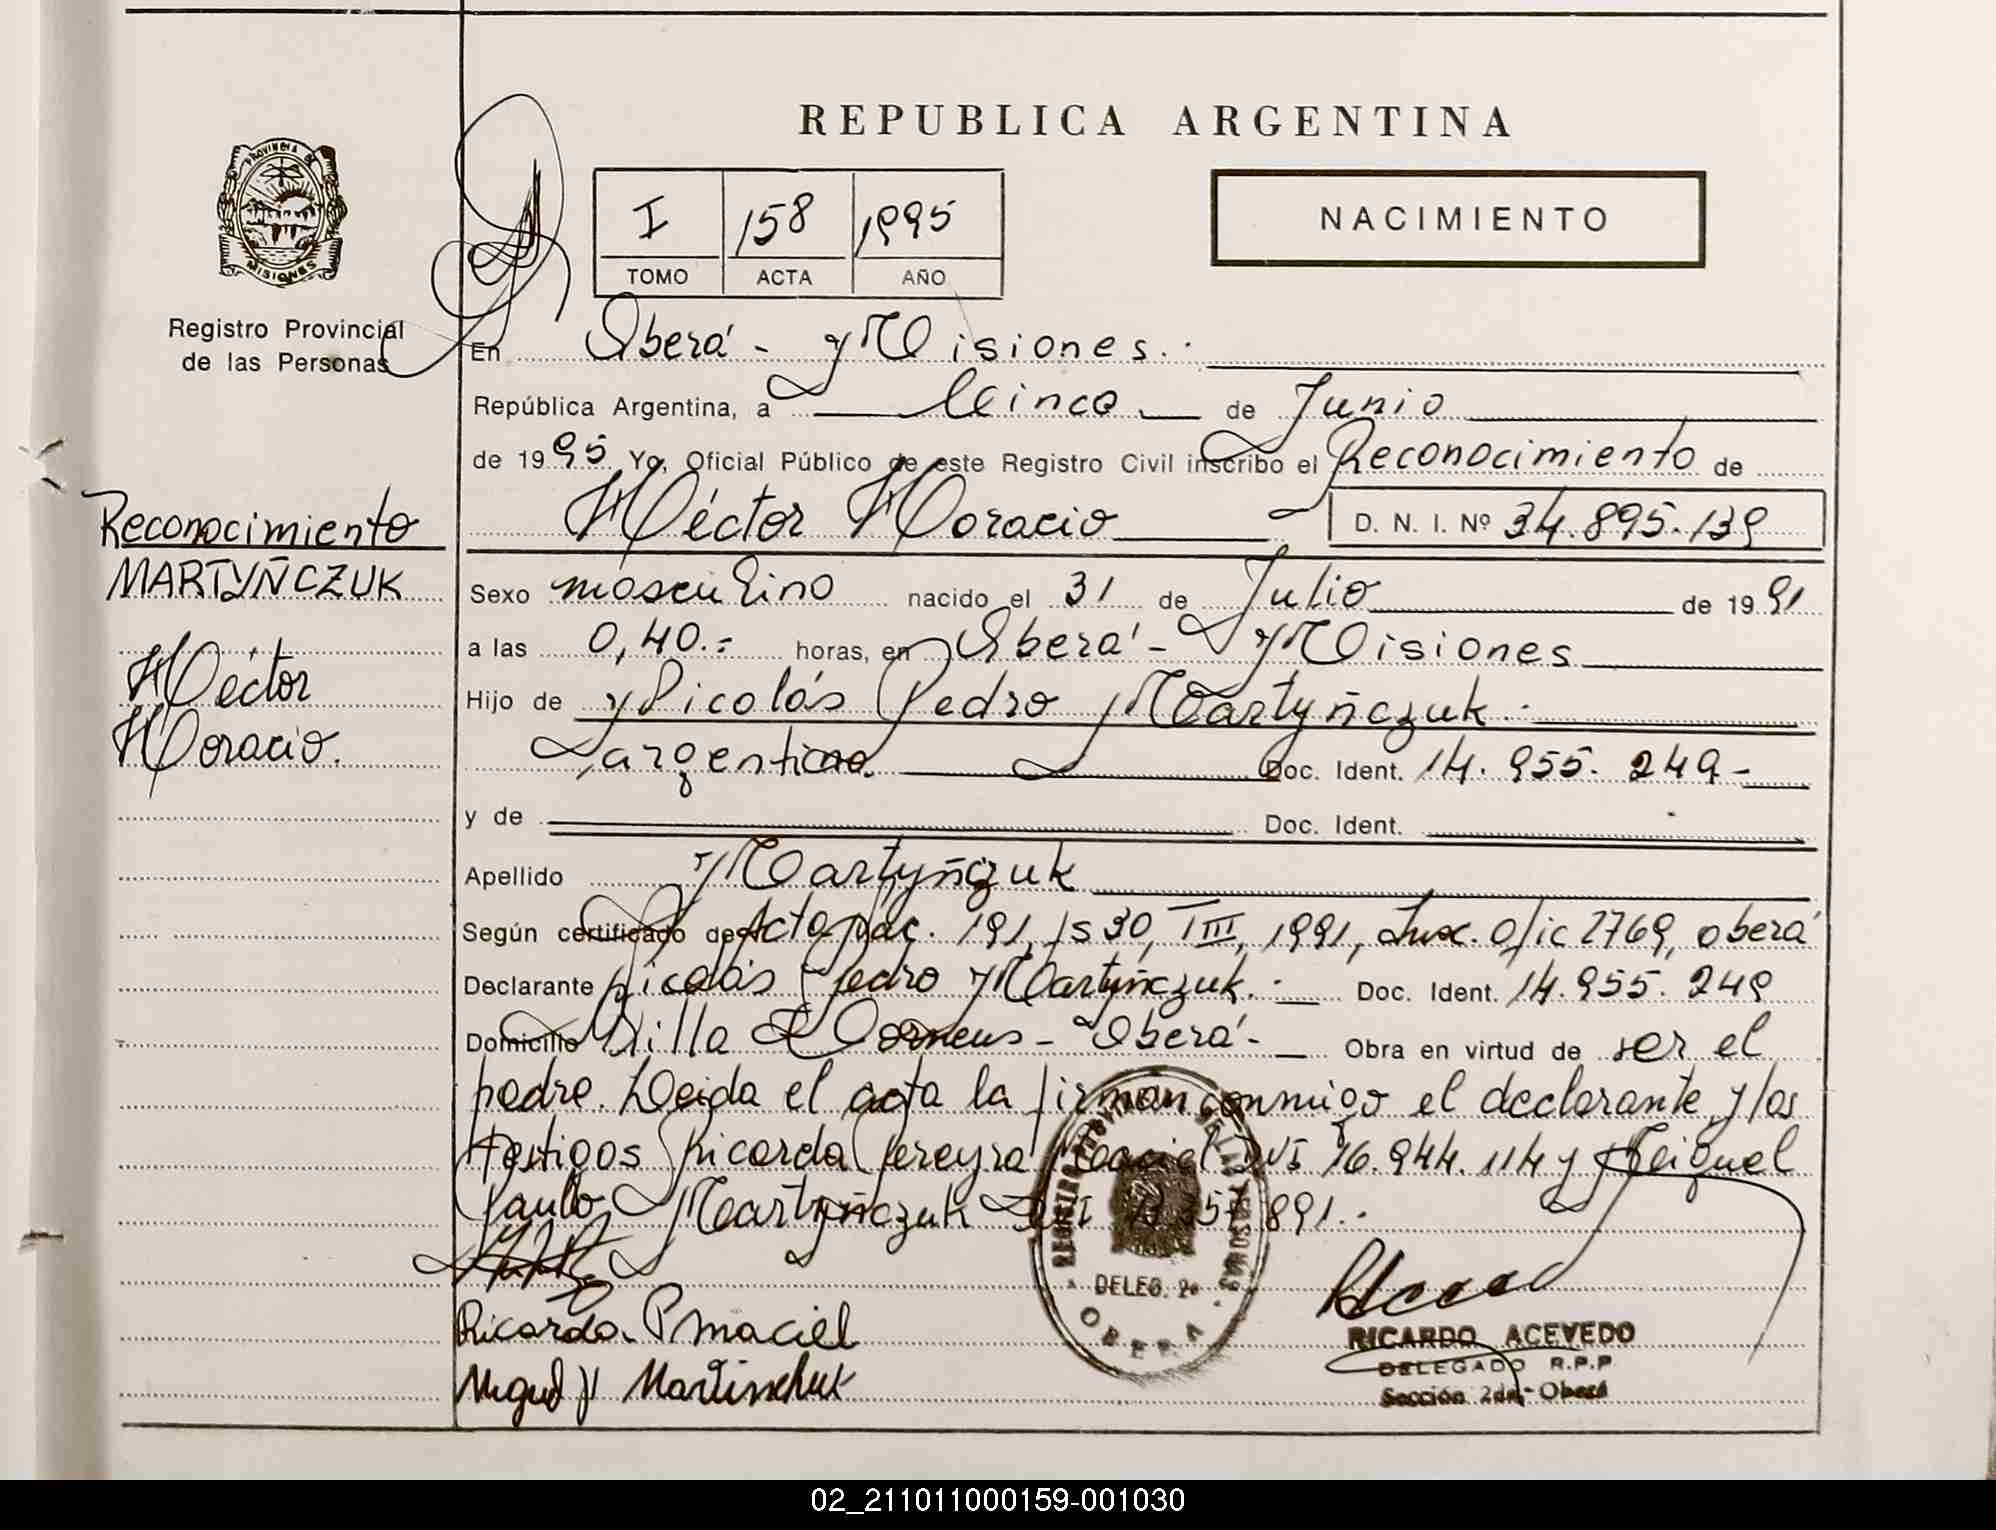 REPUBLICA ARGENTINA
PROVINCIA DE
MISIONES
Registro Provincial
de las Personas
I 158 1995
TOMO ACTA AÑO
NACIMIENTO
En Oberá - Misiones.
República Argentina, a Cinco de Junio
de 1995 Yo, Oficial Público de este Registro Civil inscribo el Reconocimiento de
Héctor Horacio D. N. I. Nº 34.895.139
Reconocimiento
MARTYÑCZUK
Héctor
Horacio.
Sexo masculino nacido el 31 de Julio de 1991
a las 0,40.= horas, en Oberá - Misiones
Hijo de Nicolás Pedro Martyñczuk.
argentino. Doc. Ident. 14.955.249-
y de Doc. Ident.
Apellido Martyñczuk
Según certificado de Acta Nac. 191, fs 30, TIII, 1991, Ofic 2769, Oberá
Declarante Nicolás Pedro Martyñczuk. Doc. Ident. 14.955.249
Domicilio Villa - Oberá - Obra en virtud de ser el
padre. Leida el acta la firman conmigo el declarante y los
testigos Ricardo Pereyra Maciel DNI 16.944.114 y Miguel
Martyñczuk DNI 891.
REGISTRO PROVINCIAL DE LAS PERSONAS
DELEG. 2a
OBERA
Ricardo P maciel
Miguel Martinchuk
RICARDO ACEVEDO
DELEGADO R.P.P
Sección 2da - Oberá
02_211011000159-001030